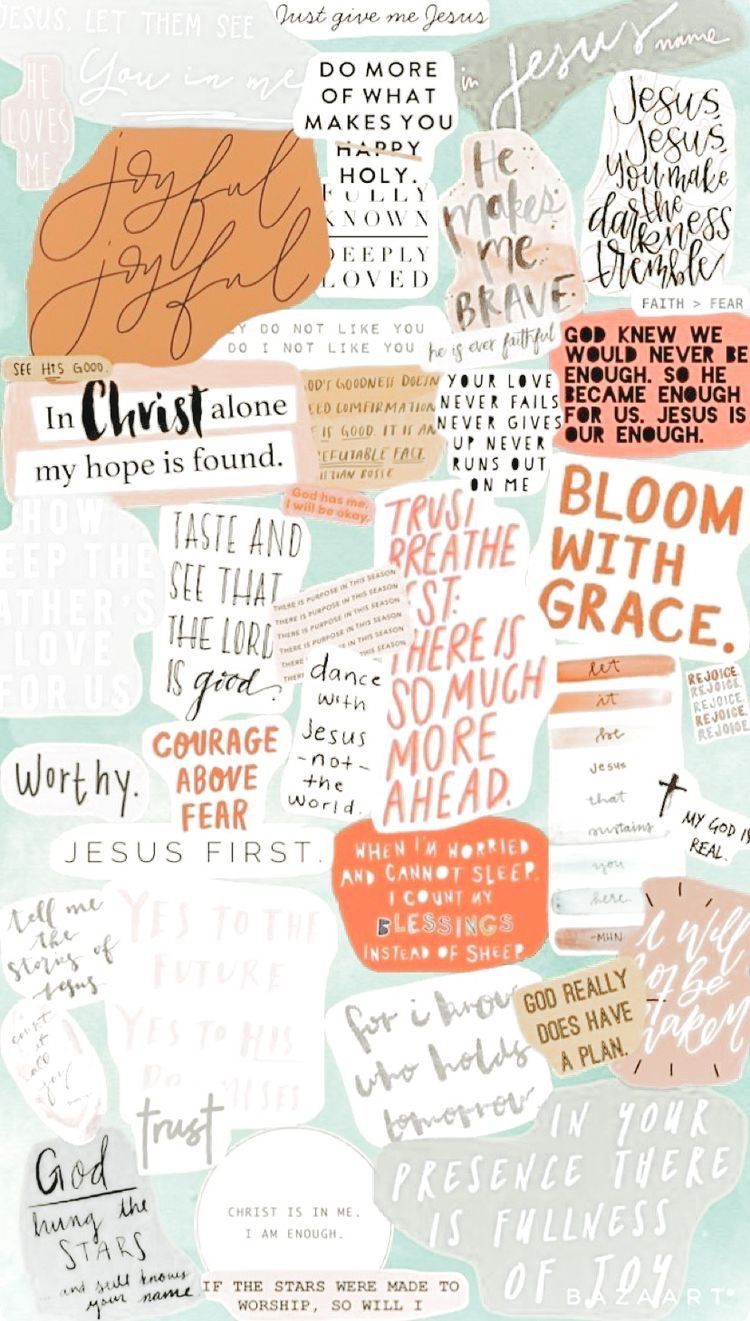 JESUS, LET THEM SEE
You in me
Just give me Jesus
in Jesus name
HE
LOVES
ME
DO MORE
OF WHAT
MAKES YOU
HAPPY
HOLY.
joyful
joyful
FULLY
KNOWN
DEEPLY
LOVED
He
makes
me
BRAVE.
Jesus,
Jesus,
you make
the
darkness
tremble
FAITH > FEAR
DO NOT LIKE YOU
DO I NOT LIKE YOU
he is ever faithful
GOD KNEW WE
WOULD NEVER BE
ENOUGH. SO HE
BECAME ENOUGH
FOR US. JESUS IS
OUR ENOUGH.
SEE HIS GOOD.
In Christ alone
my hope is found.
GOD'S GOODNESS DOESN
EED COMFIRMATION
IS GOOD. IT IS AN
EFUTABLE FACT
YOUR LOVE
NEVER FAILS
NEVER GIVES
UP NEVER
RUNS OUT
ON ME
God has me,
I will be okay.
BLOOM
WITH
GRACE.
HOW
EEP THE
ATHER'S
LOVE
FOR US
TASTE AND
SEE THAT
THE LORD
IS good.
THERE IS PURPOSE IN THIS SEASON
THERE IS PURPOSE IN THIS SEASON
THERE IS PURPOSE IN THIS SEASON
THERE IS PURPOSE IN THIS SEASON
THERE
TRUST
BREATHE
EST:
THERE IS
SO MUCH
MORE
AHEAD.
dance
with
Jesus
-not-
the
world.
let
it
be
Jesus
that
sustains
you
here
-MHN
REJOICE.
REJOICE.
REJOICE.
REJOICE.
REJOICE.
Worthy.
COURAGE
ABOVE
FEAR
MY GOD IS
REAL.
JESUS FIRST.
WHEN I'M WORRIED
AND CANNOT SLEEP.
I COUNT MY
BLESSINGS
INSTEAD OF SHEEP
tell me
the
stories of
Jesus
YES TO THE
FUTURE
YES TO HIS
PROMISES
I will
not be
shaken
count
it
all
joy
for i know
who holds
tomorrow
GOD REALLY
DOES HAVE
A PLAN.
trust
God
hung the
STARS
and still knows
your name
CHRIST IS IN ME.
I AM ENOUGH.
IN YOUR
PRESENCE THERE
IS FULLNESS
OF JOY
IF THE STARS WERE MADE TO
WORSHIP, SO WILL I
BAZAART